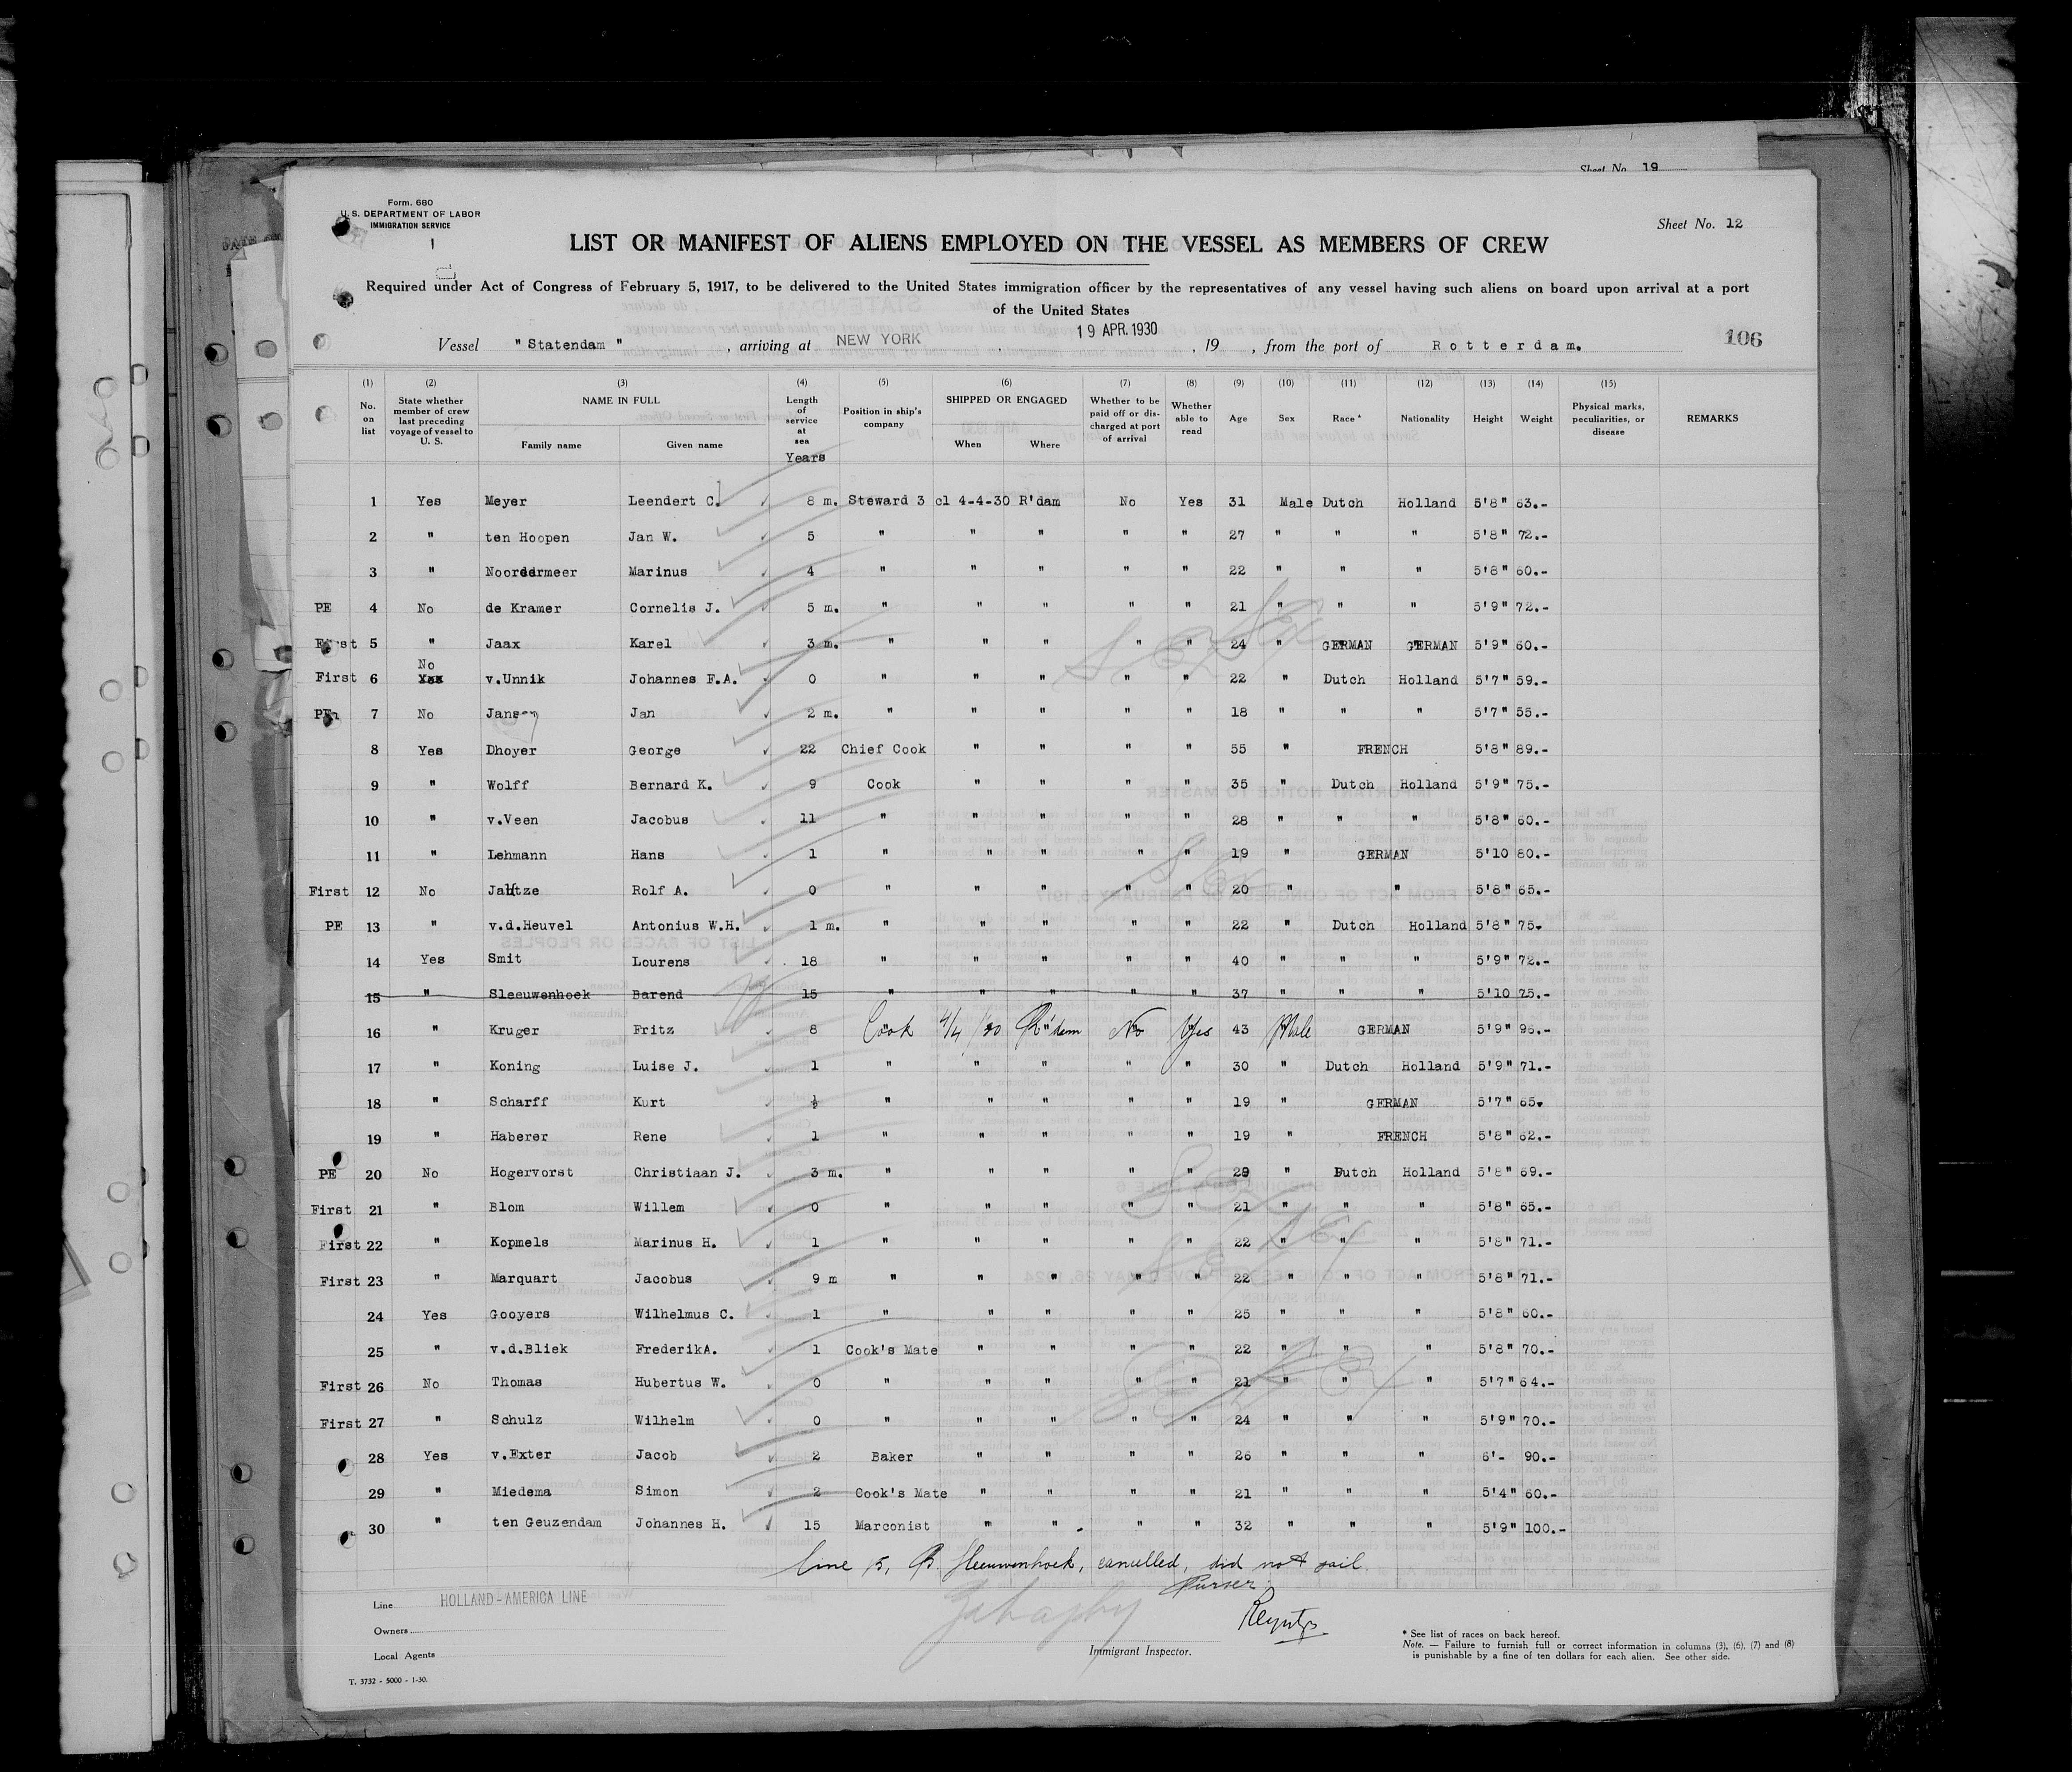 Sheet No. 19
Form. 680
U. S. DEPARTMENT OF LABOR
IMMIGRATION SERVICE
Sheet No. 12
LIST OR MANIFEST OF ALIENS EMPLOYED ON THE VESSEL AS MEMBERS OF CREW
Required under Act of Congress of February 5, 1917, to be delivered to the United States immigration officer by the representatives of any vessel having such aliens on board upon arrival at a port
of the United States
Vessel " Statendam ", arriving at NEW YORK, 19 APR. 1930, 19 , from the port of Rotterdam. 106
(1) (2) (3) (4) (5) (6) (7) (8) (9) (10) (11) (12) (13) (14) (15)
No. on list State whether member of crew last preceding voyage of vessel to U. S. NAME IN FULL Family name Given name Length of service at sea Years Position in ship's company SHIPPED OR ENGAGED When Where Whether to be paid off or discharged at port of arrival Whether able to read Age Sex Race * Nationality Height Weight Physical marks, peculiarities, or disease REMARKS
1 Yes Meyer Leendert C. 8 m. Steward 3 cl 4-4-30 R'dam No Yes 31 Male Dutch Holland 5'8" 63.-
2 " ten Hoopen Jan W. 5 " " " " " 27 " " " 5'8" 72.-
3 " Noordermeer Marinus 4 " " " " " 22 " " " 5'8" 60.-
PE 4 No de Kramer Cornelis J. 5 m. " " " " " 21 " " " 5'9" 72.-
First 5 " Jaax Karel 3 m. " " " " " 24 " GERMAN GERMAN 5'9" 60.-
First 6 No Yes v.Unnik Johannes F.A. 0 " " " " " 22 " Dutch Holland 5'7" 59.-
PE 7 No Jansen Jan 2 m. " " " " " 18 " " " 5'7" 55.-
8 Yes Dhoyer George 22 Chief Cook " " " " 55 " FRENCH 5'8" 89.-
9 " Wolff Bernard K. 9 Cook " " " " 35 " Dutch Holland 5'9" 75.-
10 " v.Veen Jacobus 11 " " " " " 28 " " " 5'8" 60.-
11 " Lehmann Hans 1 " " " " " 19 " GERMAN 5'10 80.-
First 12 No Rolf A. 0 " " " " " 20 " " 5'8" 65.-
PE 13 " v.d.Heuvel Antonius W.H. 1 m. " " " " " 22 " Dutch Holland 5'8" 75.
14 Yes Smit Lourens 18 " " " " " 40 " " " 5'9" 72.-
15 " Sleeuwenhoek Barend 15 " " " " " 37 " " " 5'10 75.-
16 " Kruger Fritz 8 Cook 4/4/30 R'dam No Yes 43 Male GERMAN 5'9" 96.-
17 " Koning Luise J. 1 " " " " " 30 " Dutch Holland 5'9" 71.-
18 " Scharff Kurt " " " " " 19 " GERMAN 5'7" 65.
19 " Haberer Rene 1 " " " " " 19 " FRENCH 5'8" 62.-
PE 20 No Hogervorst Christiaan J. 3 m. " " " " " 29 " Dutch Holland 5'8" 69.-
First 21 " Blom Willem 0 " " " " " 21 " " " 5'8" 65.-
First 22 " Kopmels Marinus H. 1 " " " " " 22 " " " 5'8" 71.-
First 23 " Marquart Jacobus 9 m " " " " " 22 " " " 5'8" 71.-
24 Yes Gooyers Wilhelmus C. 1 " " " " " 25 " " " 5'8" 60.-
25 " v.d.Bliek FrederikA. 1 Cook's Mate " " " " 22 " " " 5'8" 70.-
First 26 No Thomas Hubertus W. 0 " " " " " 21 " " " 5'7" 64.-
First 27 " Schulz Wilhelm 0 " " " " " 24 " " " 5'9" 70.-
28 Yes v.Exter Jacob 2 Baker " " " " 26 " " " 6'- 90.-
29 " Miedema Simon 2 Cook's Mate " " " " 21 " " " 5'4" 60.-
30 " ten Geuzendam Johannes H. 15 Marconist " " " " 32 " " " 5'9" 100.-
line 15, B. Sleeuwenhoek, cancelled, did not sail
Purser
Line HOLLAND-AMERICA LINE
Owners
Local Agents
Immigrant Inspector.
* See list of races on back hereof.
Note. — Failure to furnish full or correct information in columns (3), (6), (7) and (8)
is punishable by a fine of ten dollars for each alien. See other side.
T. 3732 - 5000 - 1-30.